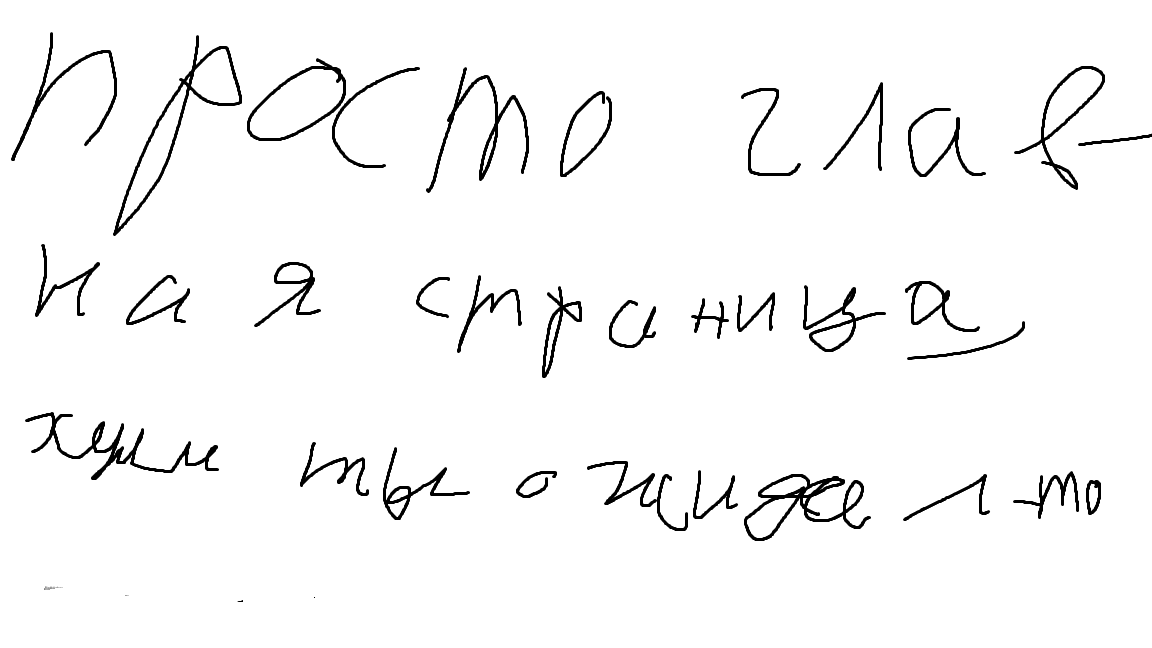 просто глав-
ная страница,
хули ты ожидал-то